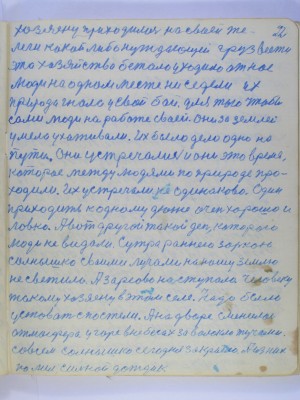 хозяену приходилося на своей те-
леги какой либо нуждающей груз вести
это хозяйство бегало уходило от нас
люди на одном месте ни сидели их
природа гнало у свой бой. для того чтобы
сами люди на работе своей они за землей
умело ухаживали. Их было дело одно на
пути. Они устречалися и они это время,
которое между людями по природе про-
ходили. Их устречали не одинаково. Один
приходить к одному дюже очен хорошо и
ловко. А вот другой такой ден, которого
люди не видали. Сутра раннего зоркою
солнышко своими лучами на нашу землю
не светило. А зарево наступала человеку
такому хозяену в этом селе. Надо было
уставать с постели. А на дворе сменило
атмосфера у горе в небесах заволокло тучами.
совсем солнышко сегодня закрыто. А возник
полил сильной дождик